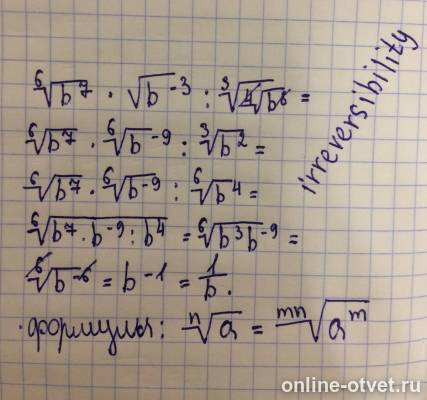 ⁶√b⁷ · √b⁻³ : ³√⁴√b⁸ =
⁶√b⁷ · ⁶√b⁻⁹ : ³√b² =
⁶√b⁷ · ⁶√b⁻⁹ : ⁶√b⁴ =
⁶√b⁷ · b⁻⁹ : b⁴ = ⁶√b³b⁻⁹ =
⁶√b⁻⁶ = b⁻¹ = 1/b.
формулы: ⁿ√a = ᵐⁿ√aᵐ
irreversibility
online-otvet.ru